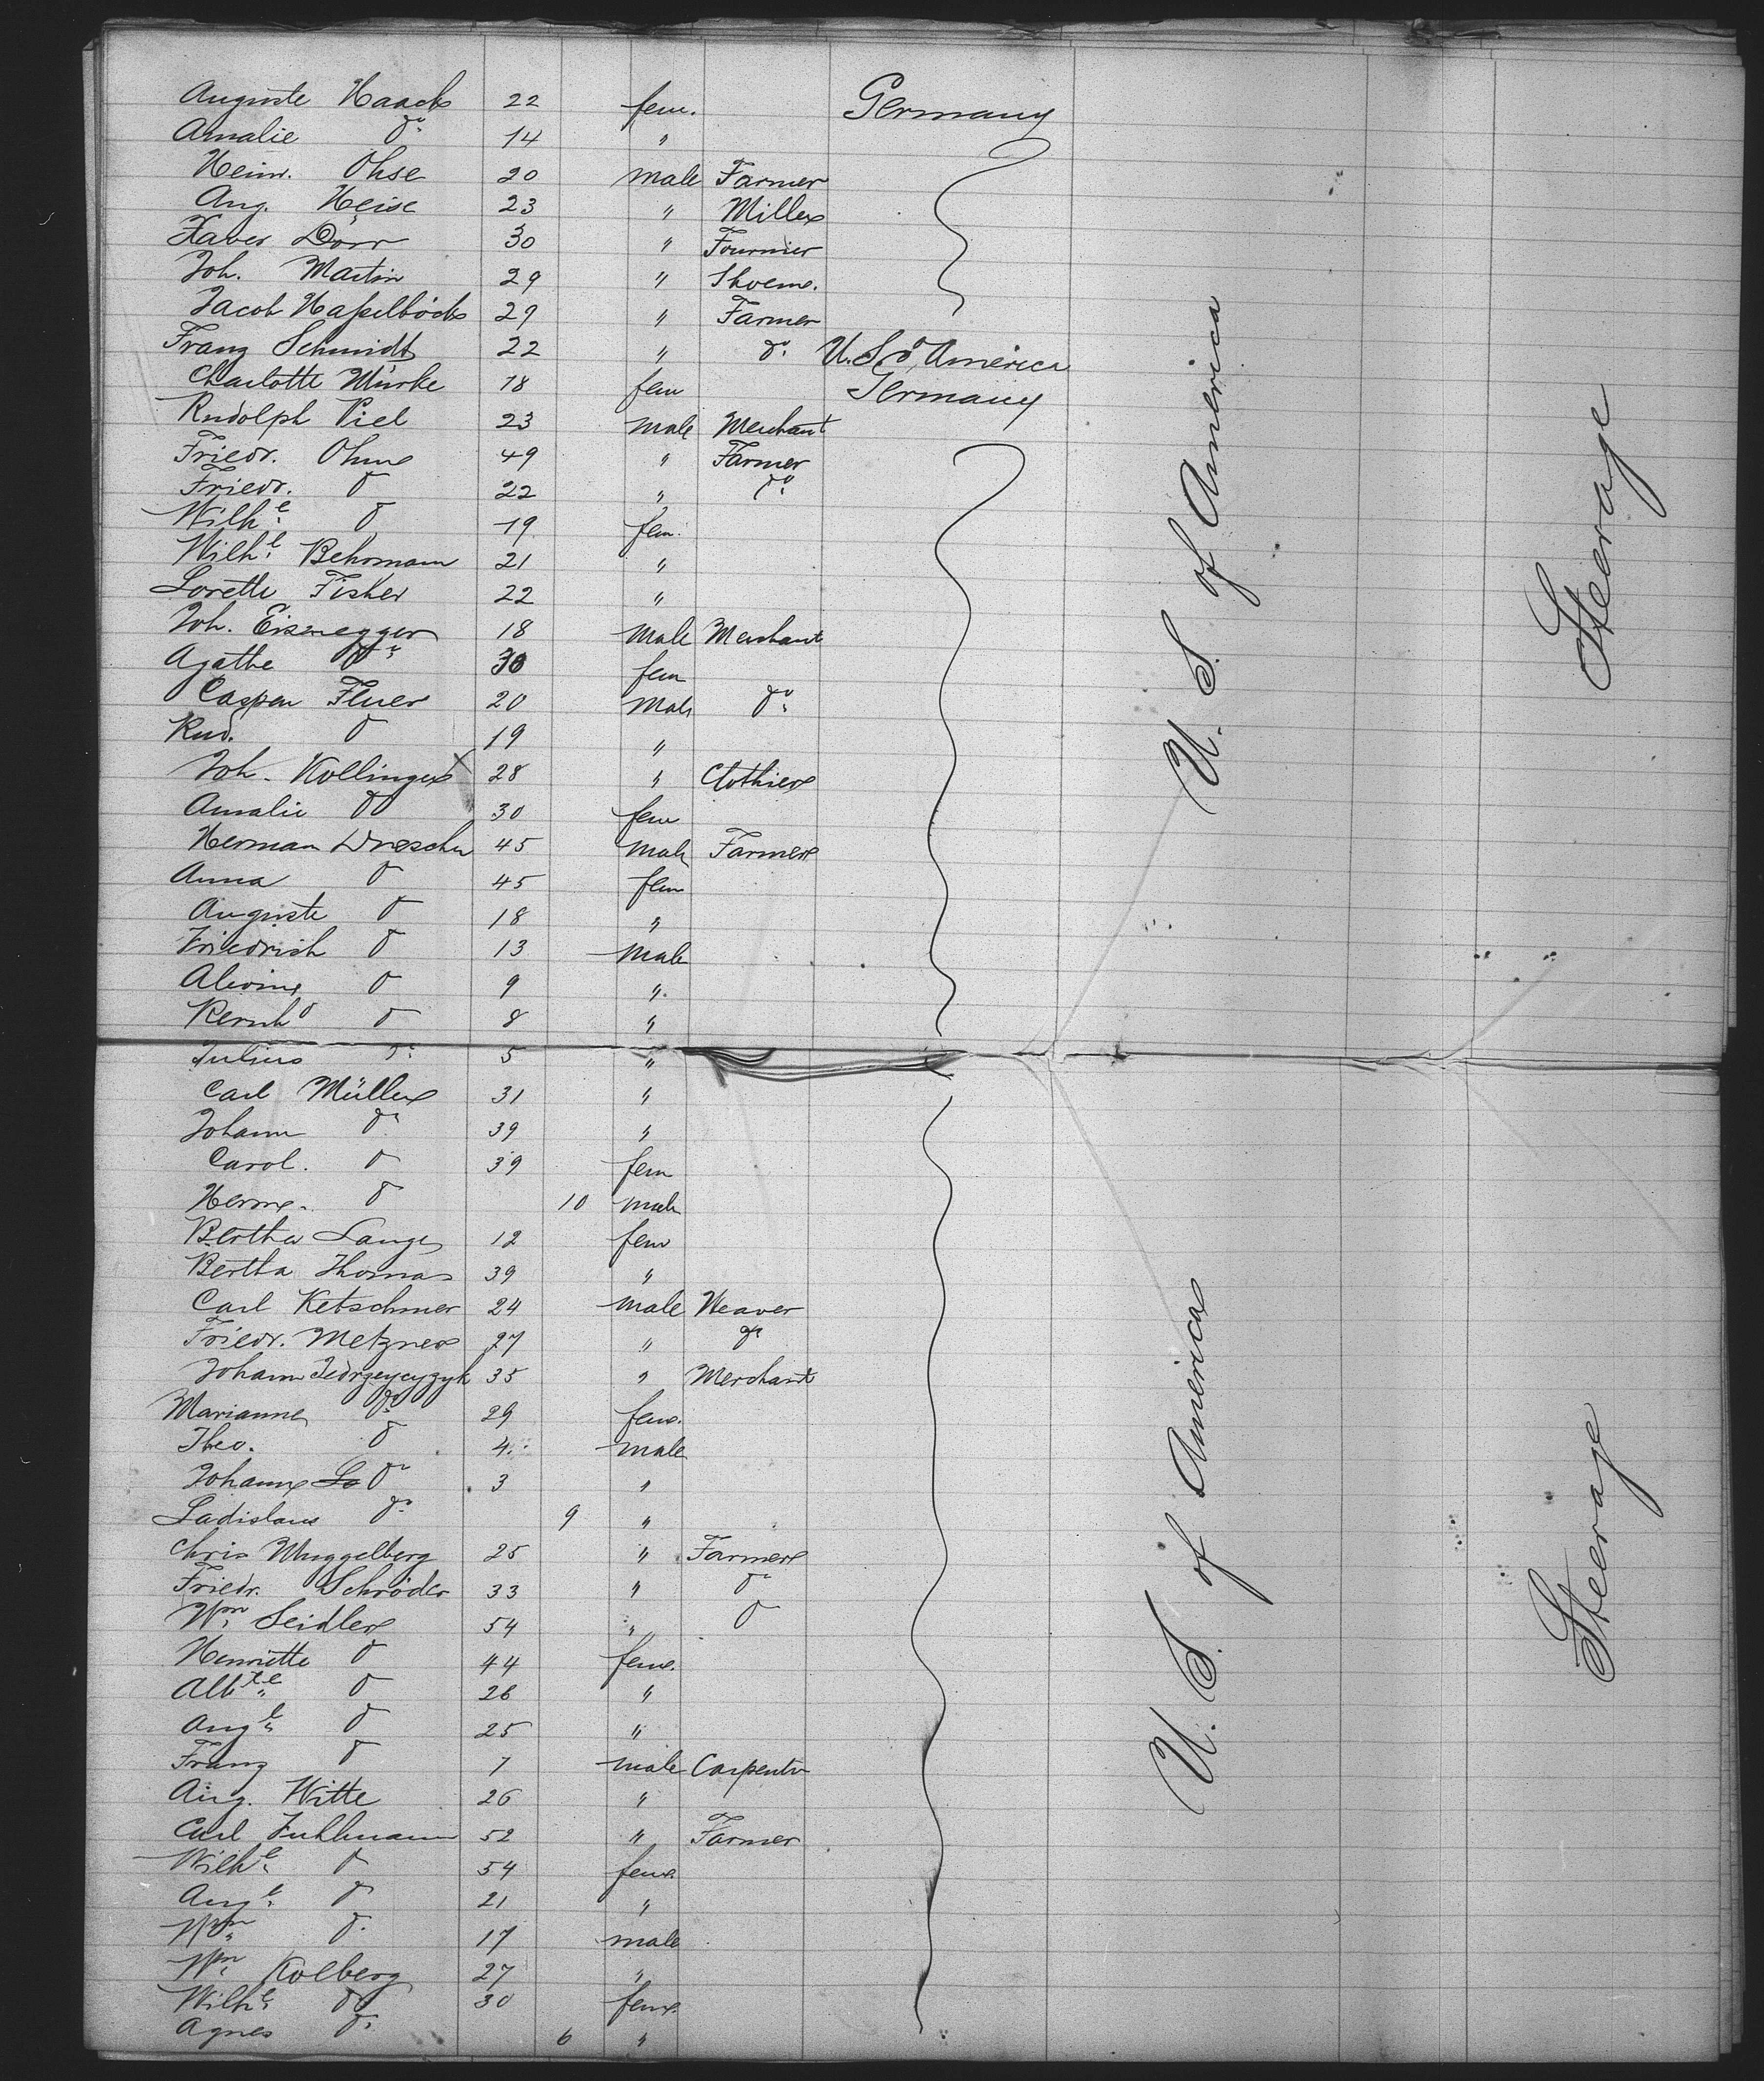 Auguste Haack 22 fem. Germany
Amalie do 14 "
Heinr. Ohse 20 male Farmer
Aug. Heise 23 " Miller
Xaver Dörr 30 " Fournier
Joh. Martin 29 " Shoem.
Jacob Haßelböck 29 " Farmer
Franz Schmidt 22 " do U.S. o America
Charlotte Mürke 18 fem Germany
Rudolph Piel 23 male Merchant
Friedr. Ohme 49 " Farmer
Friedr. do 22 " do
Wilhe do 19 fem.
Wilhe Behrmann 21 "
Lorette Fisher 22 "
Joh. Eisenegger 18 male Merchant
Agathe do 30 fem
Caspar Fluer 20 male do
Rud. do 19 "
Joh. Kollinger 28 " Clothier
Amalie do 30 fem
Herman Drescher 45 male Farmer
Anna do 45 fem
Auguste do 18 "
Friedrich do 13 male
Alwine do 9 "
Bernhd do 8 "
Julius do 5 "
Carl Müller 31 "
Johann do 39 "
Carol. do 39 fem
Herm. do 10 male
Bertha Lange 12 fem
Bertha Thomas 39 "
Carl Ketschmer 24 male Weaver
Friedr. Metzner 27 " do
Johann Jedrzeyczyk 35 " Merchant
Marianne do 29 fem.
Theo. do 4 male
Johann Lo do 3 "
Ladislaus do 9 "
Chris Muggelberg 25 " Farmer
Friedr. Schröder 33 " do
Wm Seidler 54 " do
Henriette do 44 fem.
Albte do 26 "
Auge do 25 "
Franz do 7 male Carpenter
Aug. Witte 26 "
Carl Fuhlmann 52 " Farmer
Wilhe do 54 fem.
Auge do 21 "
Wm do 17 male
Wm Kolberg 27 "
Wilhe do 30 fem.
Agnes do 6 "
U. S. of America
Steerage
U. S. of America
Steerage